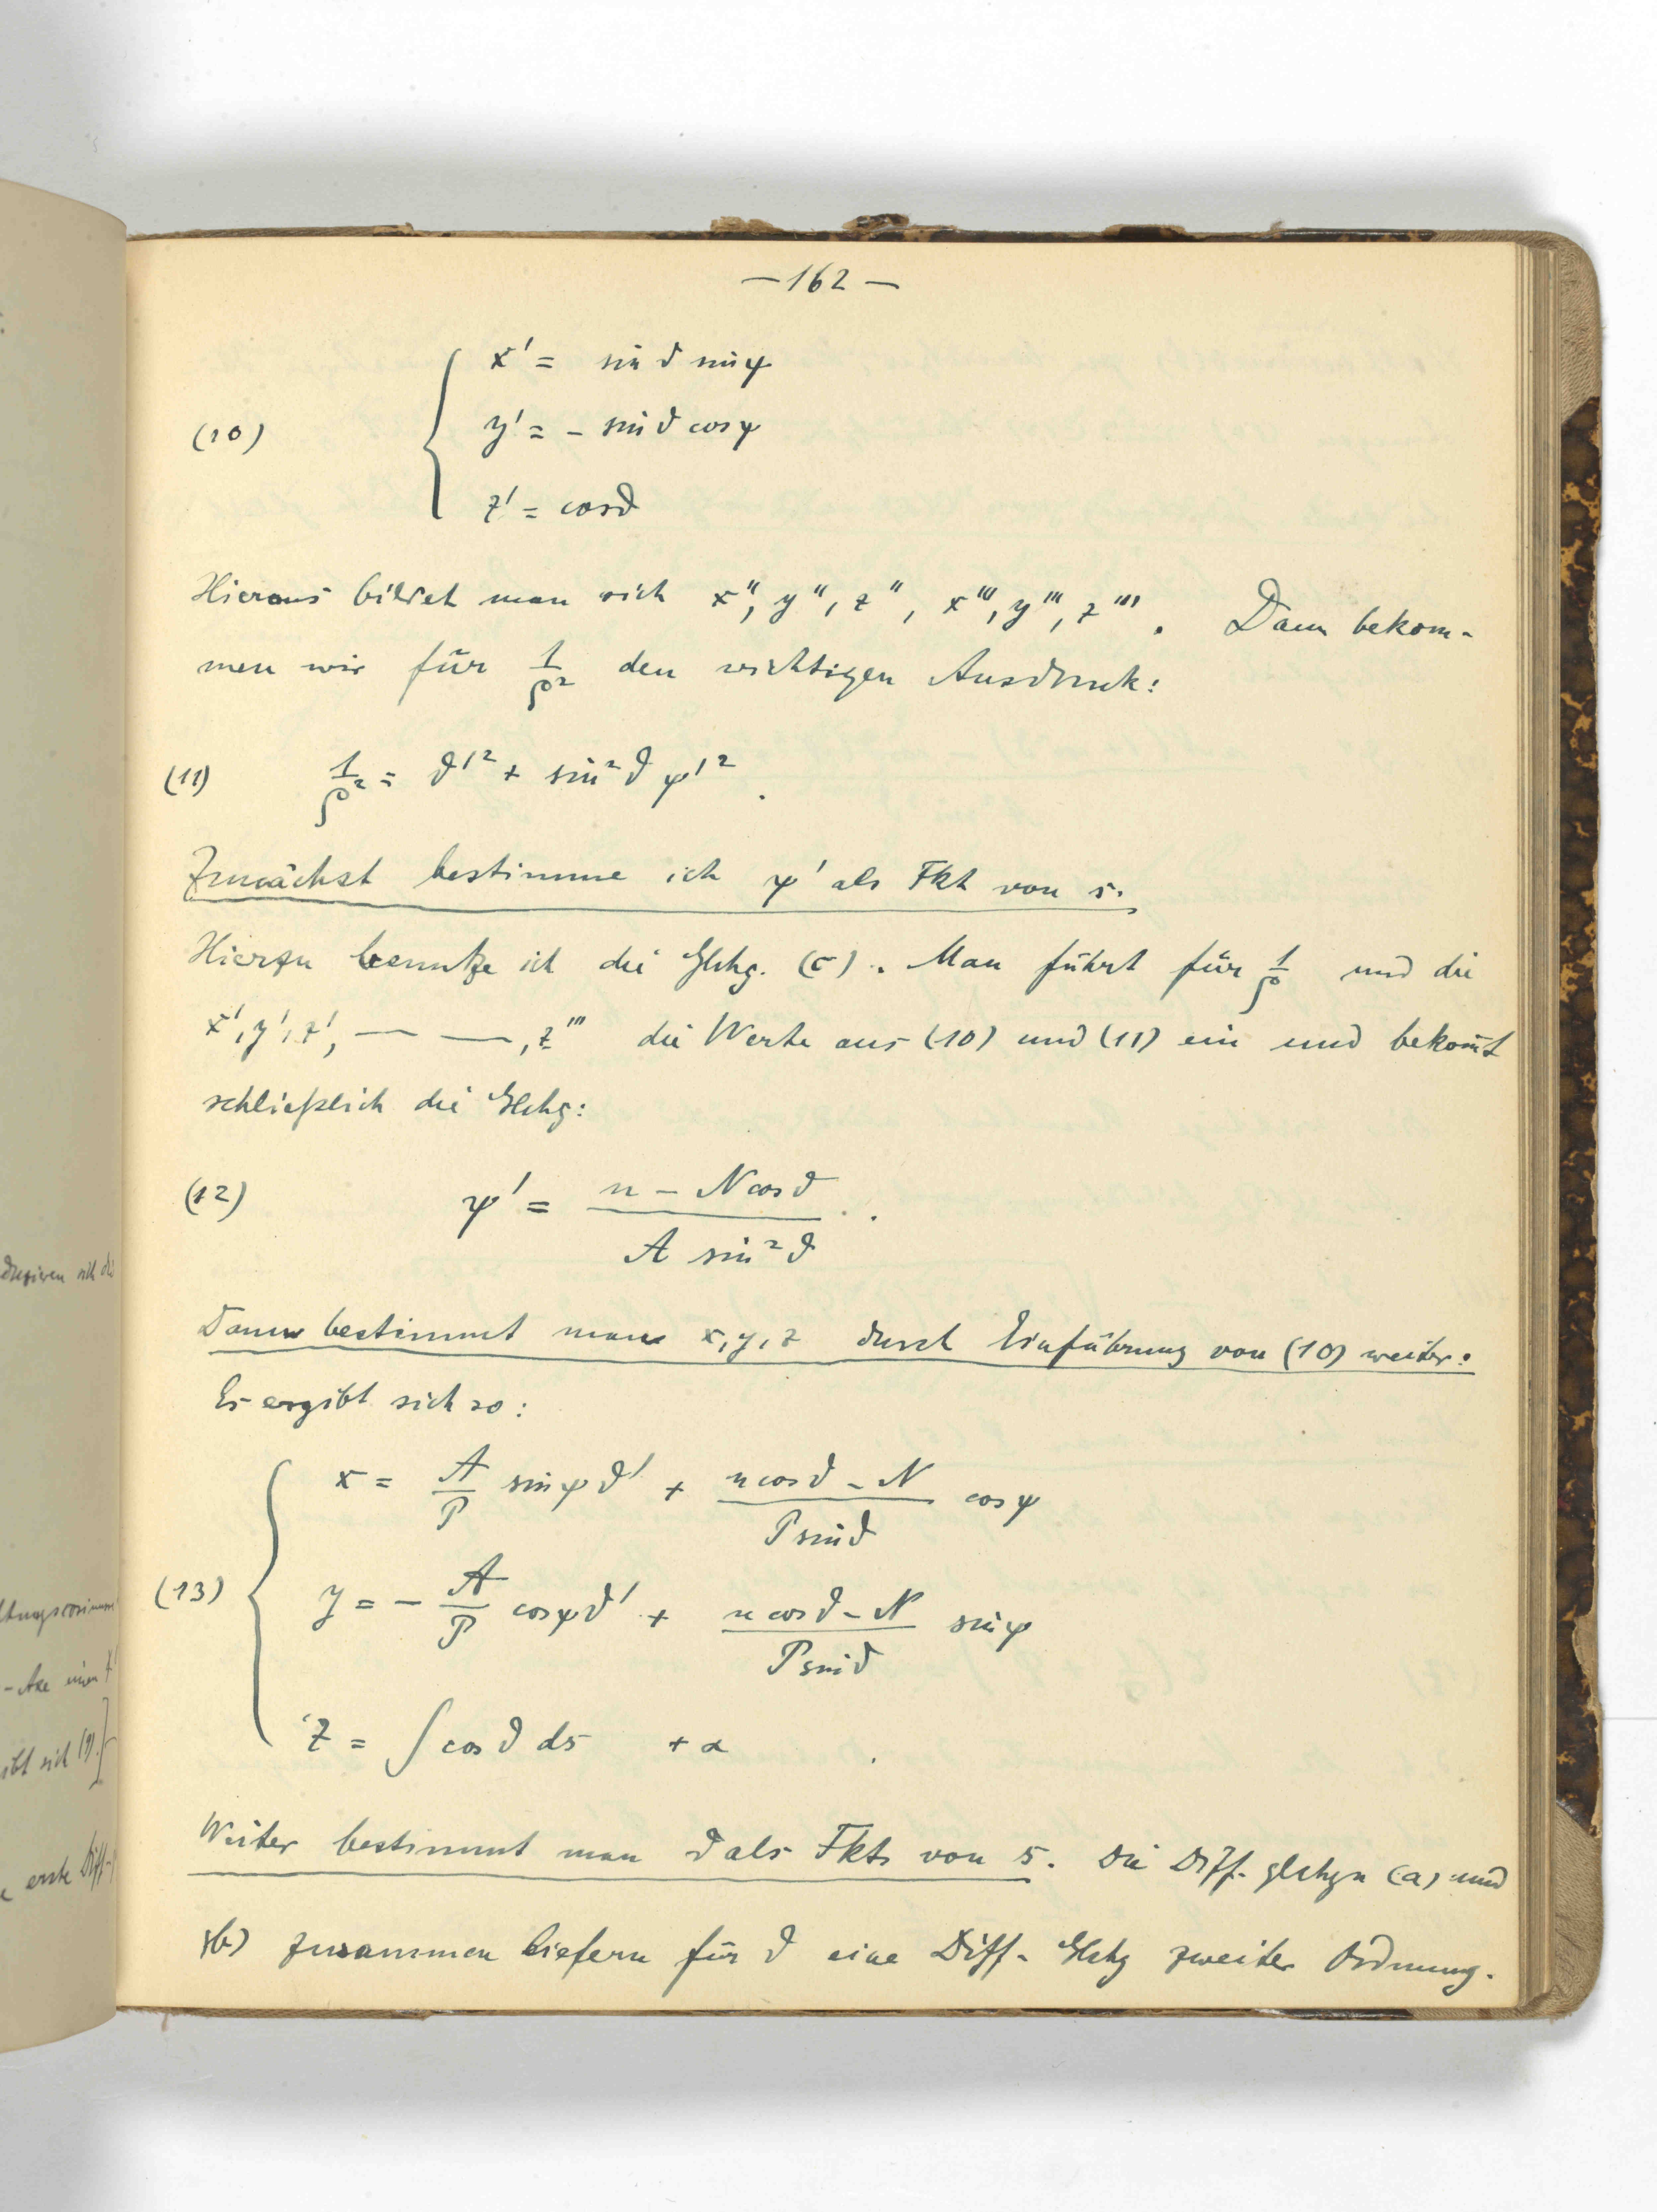 — 162 —
x' = sin ϑ sin ψ
(10) y' = - sin ϑ cos ψ
z' = cos ϑ
Hieraus bildet man sich x'', y'', z'', x''', y''', z'''. Dann bekom-
men wir für 1/ρ² den wichtigen Ausdruck:
(11) 1/ρ² = ϑ'² + sin²ϑ ψ'².
Zunächst bestimme ich ψ' als Fkt von s.
Hierzu benutze ich die Glchg. (c). Man führt für 1/ρ und die
x', y', z', — —, z''' die Werte aus (10) und (11) ein und bekom̄t
schließlich die Glchg:
(12) ψ' = (n - N cos ϑ) / (A sin²ϑ).
Dann bestimmt man x, y, z durch Einführung von (10) weiter:
Es ergibt sich so:
x = A/P sin ψ ϑ' + (n cos ϑ - N)/(P sin ϑ) cos ψ
(13) y = - A/P cos ψ ϑ' + (n cos ϑ - N)/(P sin ϑ) sin ψ
z = ∫ cos ϑ ds + α.
Weiter bestimmt man ϑ als Fkt. von s. Die Diff. glchgn (a) und
(b) zusammen liefern für ϑ eine Diff- Glchg zweiter Ordnung.
sich die
- Axe
ibt sich (9).]
erste Diff-